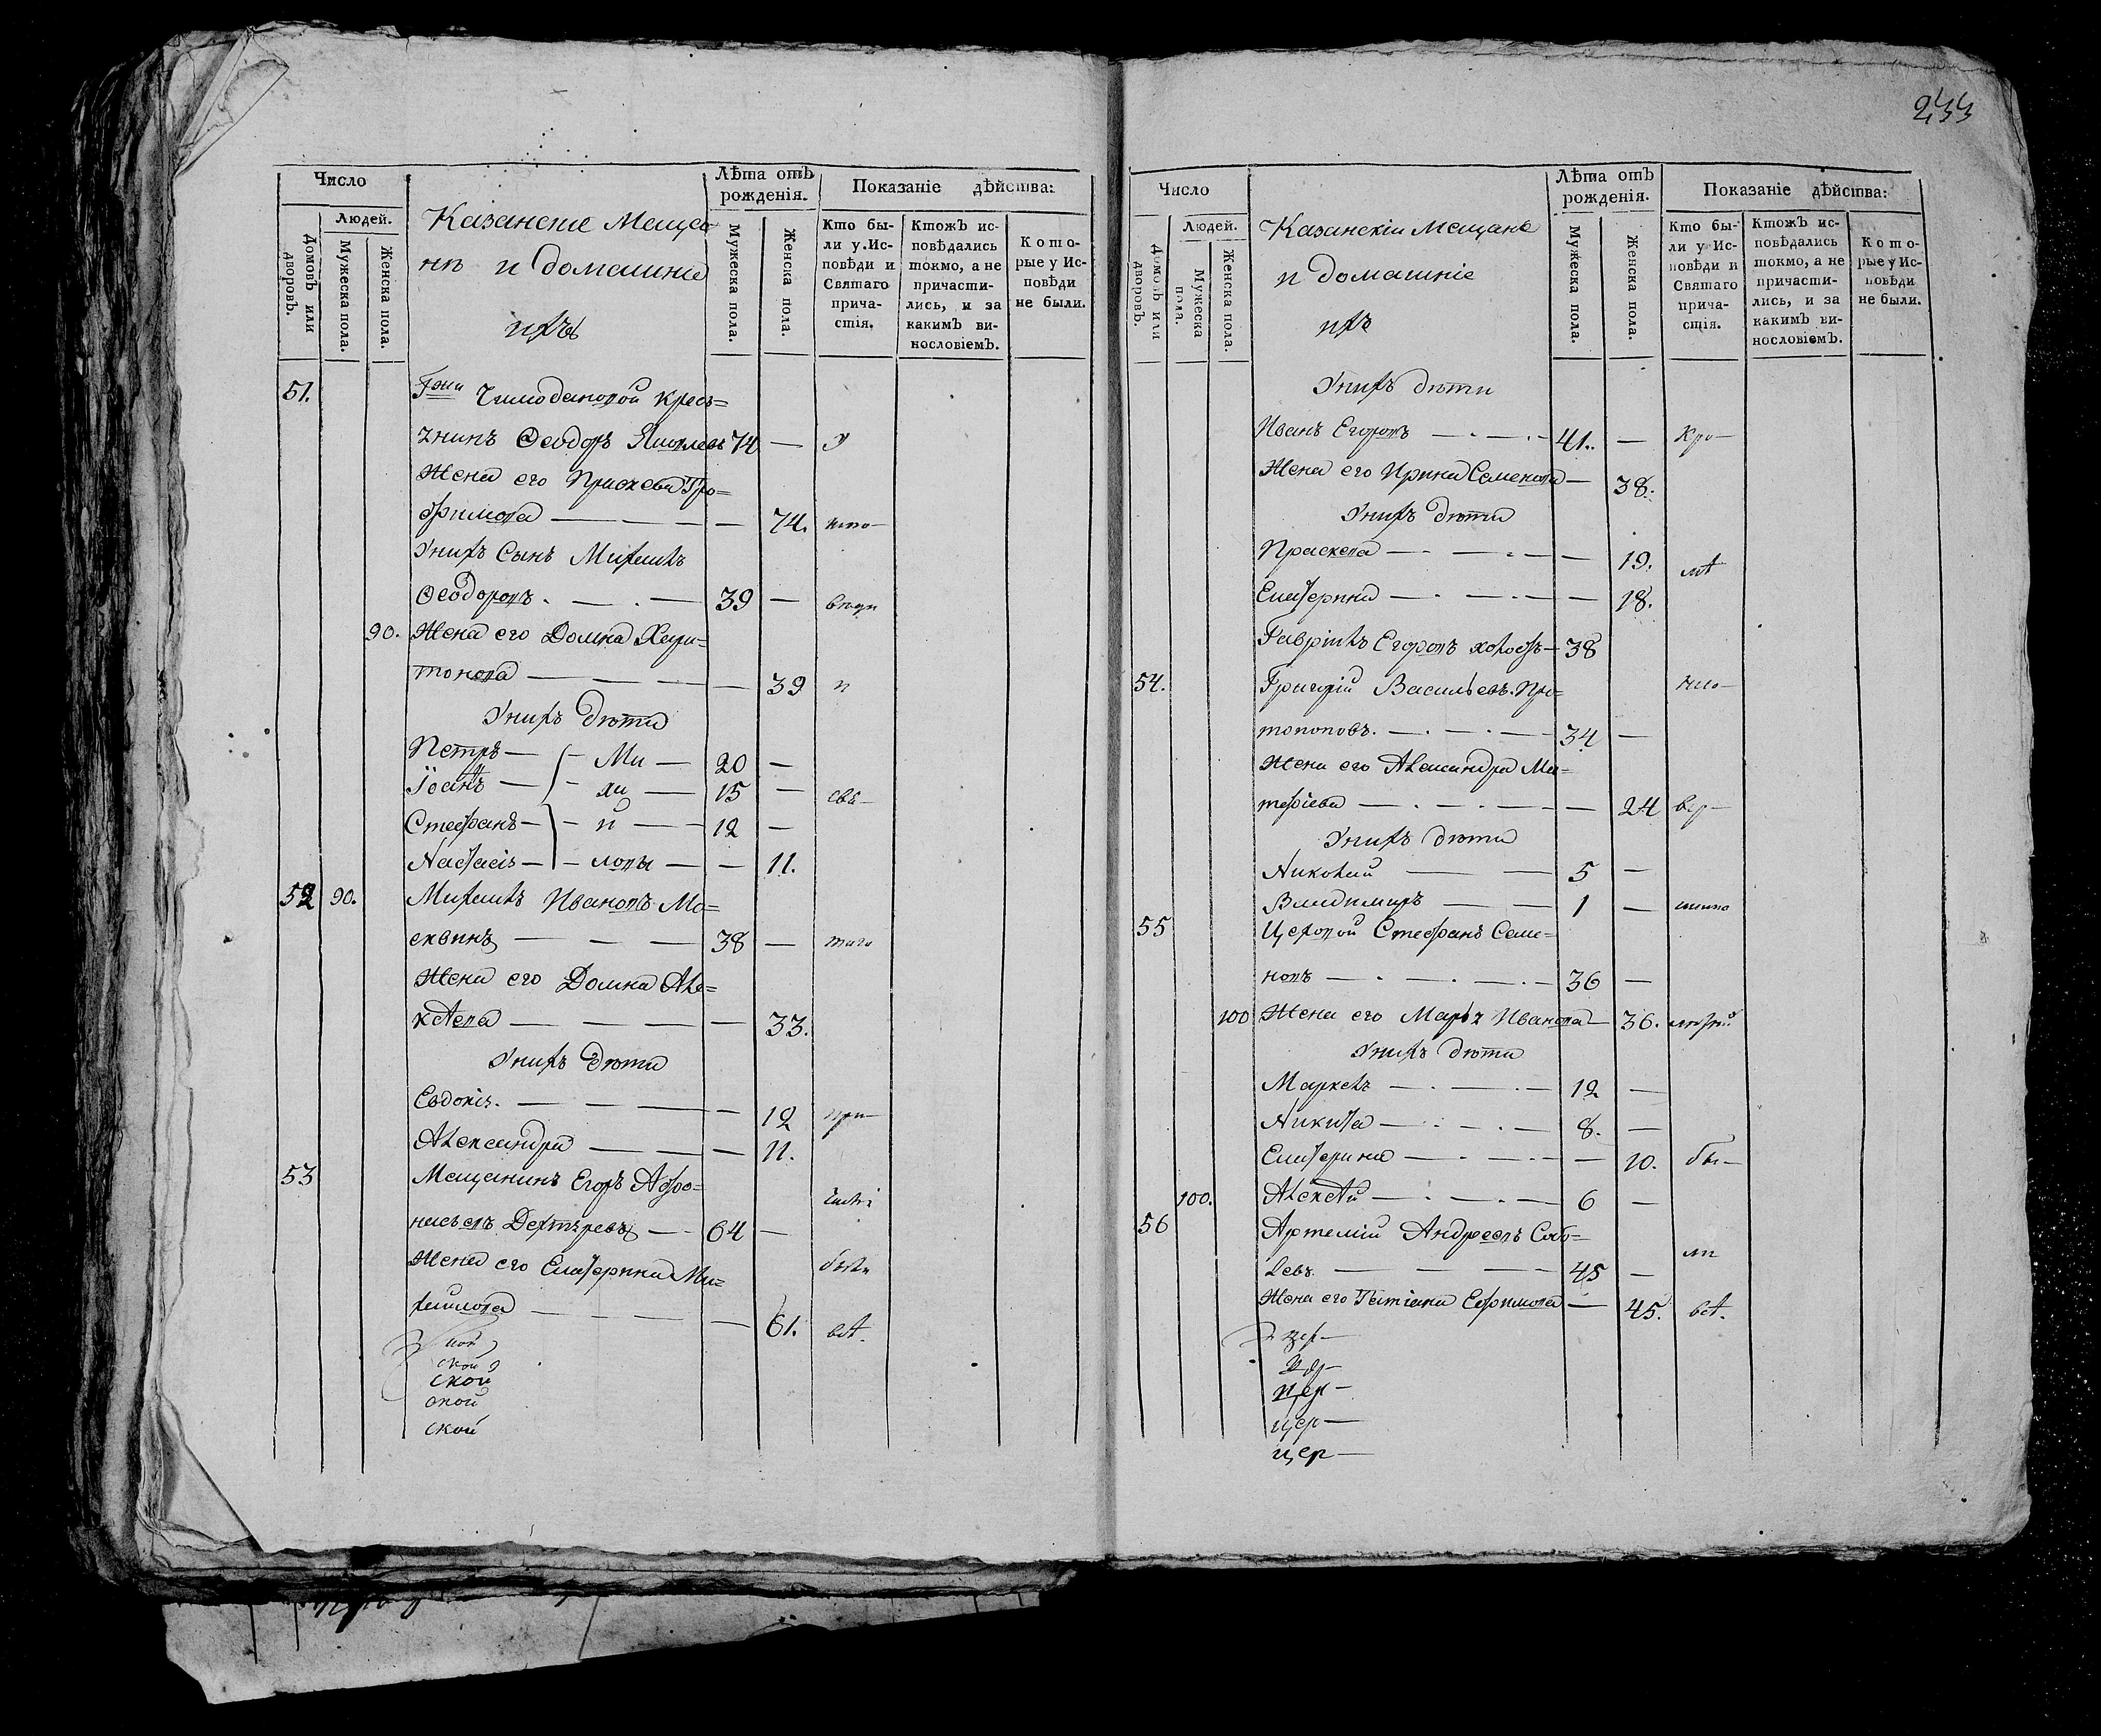 233
Число
Людей.
Домовъ или дворовъ.
Мужеска пола.
Женска пола.
Казанские Меща
не и домашние
ихъ
Лѣта отъ рожденія.
Мужеска пола.
Женска пола.
Показаніе дѣйства:
Кто бы-
ли у Ис-
повѣди и
Святаго
прича-
стія.
Ктожъ ис-
повѣдались
токмо, а не
причасти-
лись, и за
какимъ ви-
нословіемъ.
Кото-
рые у Ис-
повѣди
не были.
51. Гжи Чемодановой крес=
янинъ Ѳеодоръ Яковлевъ 74 — У
Жена его Прасковья Тро=
фимова — 74.
Унихъ Сынъ Михаилъ
Ѳеодоровъ 39 —
90. Жена его Домна Хари=
тонова — 39 и
Унихъ дѣти
Петръ — Ми — 20 —
Іоанъ — ха — 15 —
Стефанъ — й — 12 —
Настасія — ловы — — 11.
52 90. Михаилъ Ивановъ Мо=
сквинъ 38 — того
Жена его Домна Але=
ксѣева — 33.
Унихъ дѣти
Евдокія — 12 при—
Александра — 11.
53 Мещанинъ Егоръ Афо=
насьевъ Дехтеревъ 64 —
Жена его Екатерина Ми=
хайлова — 61. всѣ.
ской
ской
ской
ской
Число
Людей.
Домовъ или дворовъ.
Мужеска пола.
Женска пола.
Казанскіи Мещане
и домашніе
ихъ
Лѣта отъ рожденія.
Мужеска пола.
Женска пола.
Показаніе дѣйства:
Кто бы-
ли у Ис-
повѣди и
Святаго
прича-
стія.
Ктожъ ис-
повѣдались
токмо, а не
причасти-
лись, и за
какимъ ви-
нословіемъ.
Кото-
рые у Ис-
повѣди
не были.
Унихъ дѣти
Иванъ Егоровъ 41. — Кро—
Жена его Ирина Семенова — 38.
Унихъ дѣти
Праскева — 19. мѣ
Екатерина — 18.
Гавріилъ Егоровъ холостъ 38
54. Григорій Васильевъ Про=
топоповъ 34 —
Жена его Александра Ма=
тфіева — 24
Унихъ дѣти
Николай 5 —
Владимиръ 1 —
55 Цеховой Стефанъ Семе=
новъ 36 —
100 Жена его Марья Иванова — 36.
Унихъ дѣти
Маркелъ 12 —
Никита 8. —
Екатерина — 10. бы—
100. Алексѣй 6 —
56 Артемій Андреевъ Собо=
левъ 45 — ли
Жена его Татіана Ефимова — 45. всѣ.
цер—
цер—
цер—
цер—